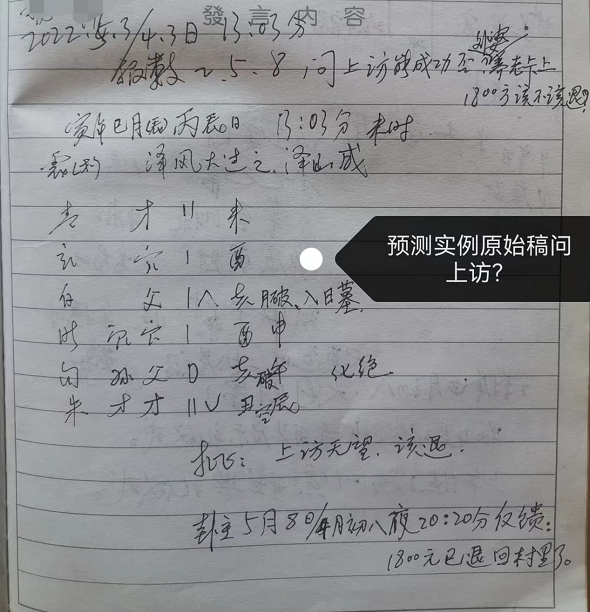 發言内容
2022年5.3/4.3日 13:03分
报数 2.5.8 问上访能成功否
1800方该不该退?
寅年巳月 丙辰日 13:03分 未时
泽风大过之泽山咸
玄 才 〃 未
玄 官 | 酉
白 父 | 亥月破、入日墓
官 | 酉申
勾 孙父 亥 午 化绝
朱 才才 〃 丑 辰
批: 上访无望. 该退.
卦主5月8日/4月初八夜20:20分反馈:
1800元已退回村里了。
预测实例原始稿问
上访?